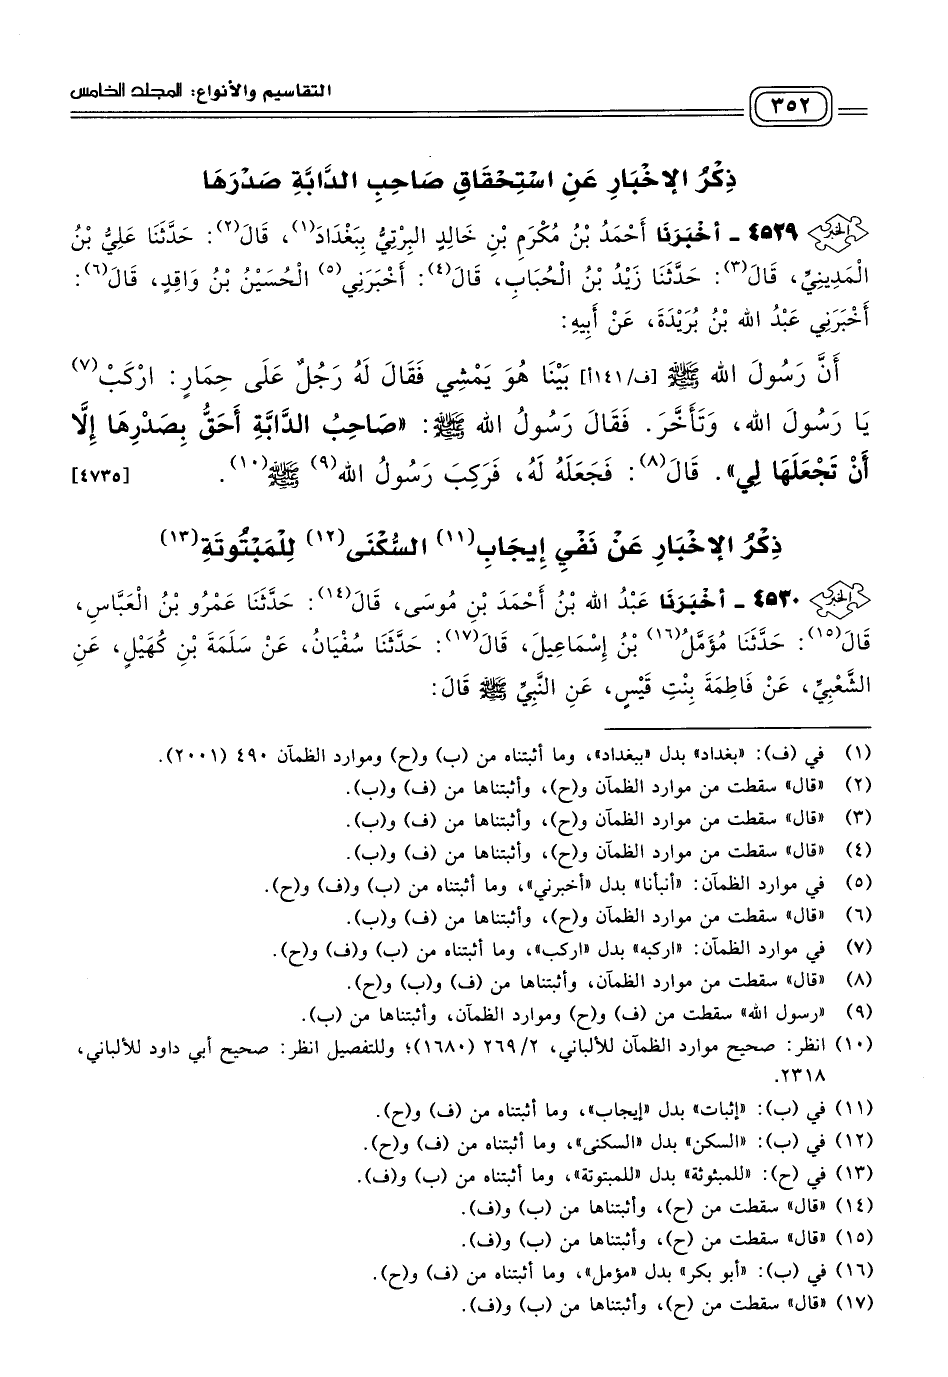 ٣٥٢
التقاسيم والأنواع: المجلد الخامس
ذِكْرُ الإخْبَارِ عَنِ اسْتِحْقَاقِ صَاحِبِ الدَّابَّةِ صَدْرَهَا
٤٥٢٩ ـ أخْبَرَنَا أَحْمَدُ بْنُ مُكْرَمِ بْنِ خَالِدٍ البِرْتِيُّ بِبَغْدَادَ(١)، قَالَ(٢): حَدَّثَنَا عَلِيُّ بْنُ
الْمَدِينِيِّ، قَالَ(٣): حَدَّثَنَا زَيْدُ بْنُ الْحُبَابِ، قَالَ(٤): أَخْبَرَنِي(٥) الْحُسَيْنُ بْنُ وَاقِدٍ، قَالَ(٦):
أَخْبَرَنِي عَبْدُ الله بْنُ بُرَيْدَةَ، عَنْ أَبِيهِ:
أَنَّ رَسُولَ الله ﷺ [ف/١٤١أ] بَيْنَا هُوَ يَمْشِي فَقَالَ لَهُ رَجُلٌ عَلَى حِمَارٍ: ارْكَبْ(٧)
يَا رَسُولَ الله، وَتَأَخَّرَ. فَقَالَ رَسُولُ الله ﷺ: «صَاحِبُ الدَّابَّةِ أَحَقُّ بِصَدْرِهَا إِلَّا
أَنْ تَجْعَلَهَا لِي». قَالَ(٨): فَجَعَلَهُ لَهُ، فَرَكِبَ رَسُولُ الله(٩) ﷺ(١٠). [٤٧٣٥]
ذِكْرُ الإخْبَارِ عَنْ نَفْيِ إِيجَابِ(١١) السُّكْنَى(١٢) لِلْمَبْتُوتَةِ(١٣)
٤٥٣٠ ـ أخْبَرَنَا عَبْدُ الله بْنُ أَحْمَدَ بْنِ مُوسَى، قَالَ(١٤): حَدَّثَنَا عَمْرُو بْنُ الْعَبَّاسِ،
قَالَ(١٥): حَدَّثَنَا مُؤَمَّلُ(١٦) بْنُ إِسْمَاعِيلَ، قَالَ(١٧): حَدَّثَنَا سُفْيَانُ، عَنْ سَلَمَةَ بْنِ كُهَيْلٍ، عَنِ
الشَّعْبِيِّ، عَنْ فَاطِمَةَ بِنْتِ قَيْسٍ، عَنِ النَّبِيِّ ﷺ قَالَ:
(١) في (ف): «بغداد» بدل «ببغداد»، وما أثبتناه من (ب) و(ح) وموارد الظمآن ٤٩٠ (٢٠٠١).
(٢) «قال» سقطت من موارد الظمآن و(ح)، وأثبتناها من (ف) و(ب).
(٣) «قال» سقطت من موارد الظمآن و(ح)، وأثبتناها من (ف) و(ب).
(٤) «قال» سقطت من موارد الظمآن و(ح)، وأثبتناها من (ف) و(ب).
(٥) في موارد الظمآن: «أنبأنا» بدل «أخبرني»، وما أثبتناه من (ب) و(ف) و(ح).
(٦) «قال» سقطت من موارد الظمآن و(ح)، وأثبتناها من (ف) و(ب).
(٧) في موارد الظمآن: «اركبه» بدل «اركب»، وما أثبتناه من (ب) و(ف) و(ح).
(٨) «قال» سقطت من موارد الظمآن، وأثبتناها من (ف) و(ب) و(ح).
(٩) «رسول الله» سقطت من (ف) و(ح) وموارد الظمآن، وأثبتناها من (ب).
(١٠) انظر: صحيح موارد الظمآن للألباني، ٢٦٩/٢ (١٦٨٠)؛ وللتفصيل انظر: صحيح أبي داود للألباني،
٢٣١٨.
(١١) في (ب): «إثبات» بدل «إيجاب»، وما أثبتناه من (ف) و(ح).
(١٢) في (ب): «السكن» بدل «السكنى»، وما أثبتناه من (ف) و(ح).
(١٣) في (ح): «للمبثوثة» بدل «للمبتوتة»، وما أثبتناه من (ب) و(ف).
(١٤) «قال» سقطت من (ح)، وأثبتناها من (ب) و(ف).
(١٥) «قال» سقطت من (ح)، وأثبتناها من (ب) و(ف).
(١٦) في (ب): «أبو بكر» بدل «مؤمل»، وما أثبتناه من (ف) و(ح).
(١٧) «قال» سقطت من (ح)، وأثبتناها من (ب) و(ف).